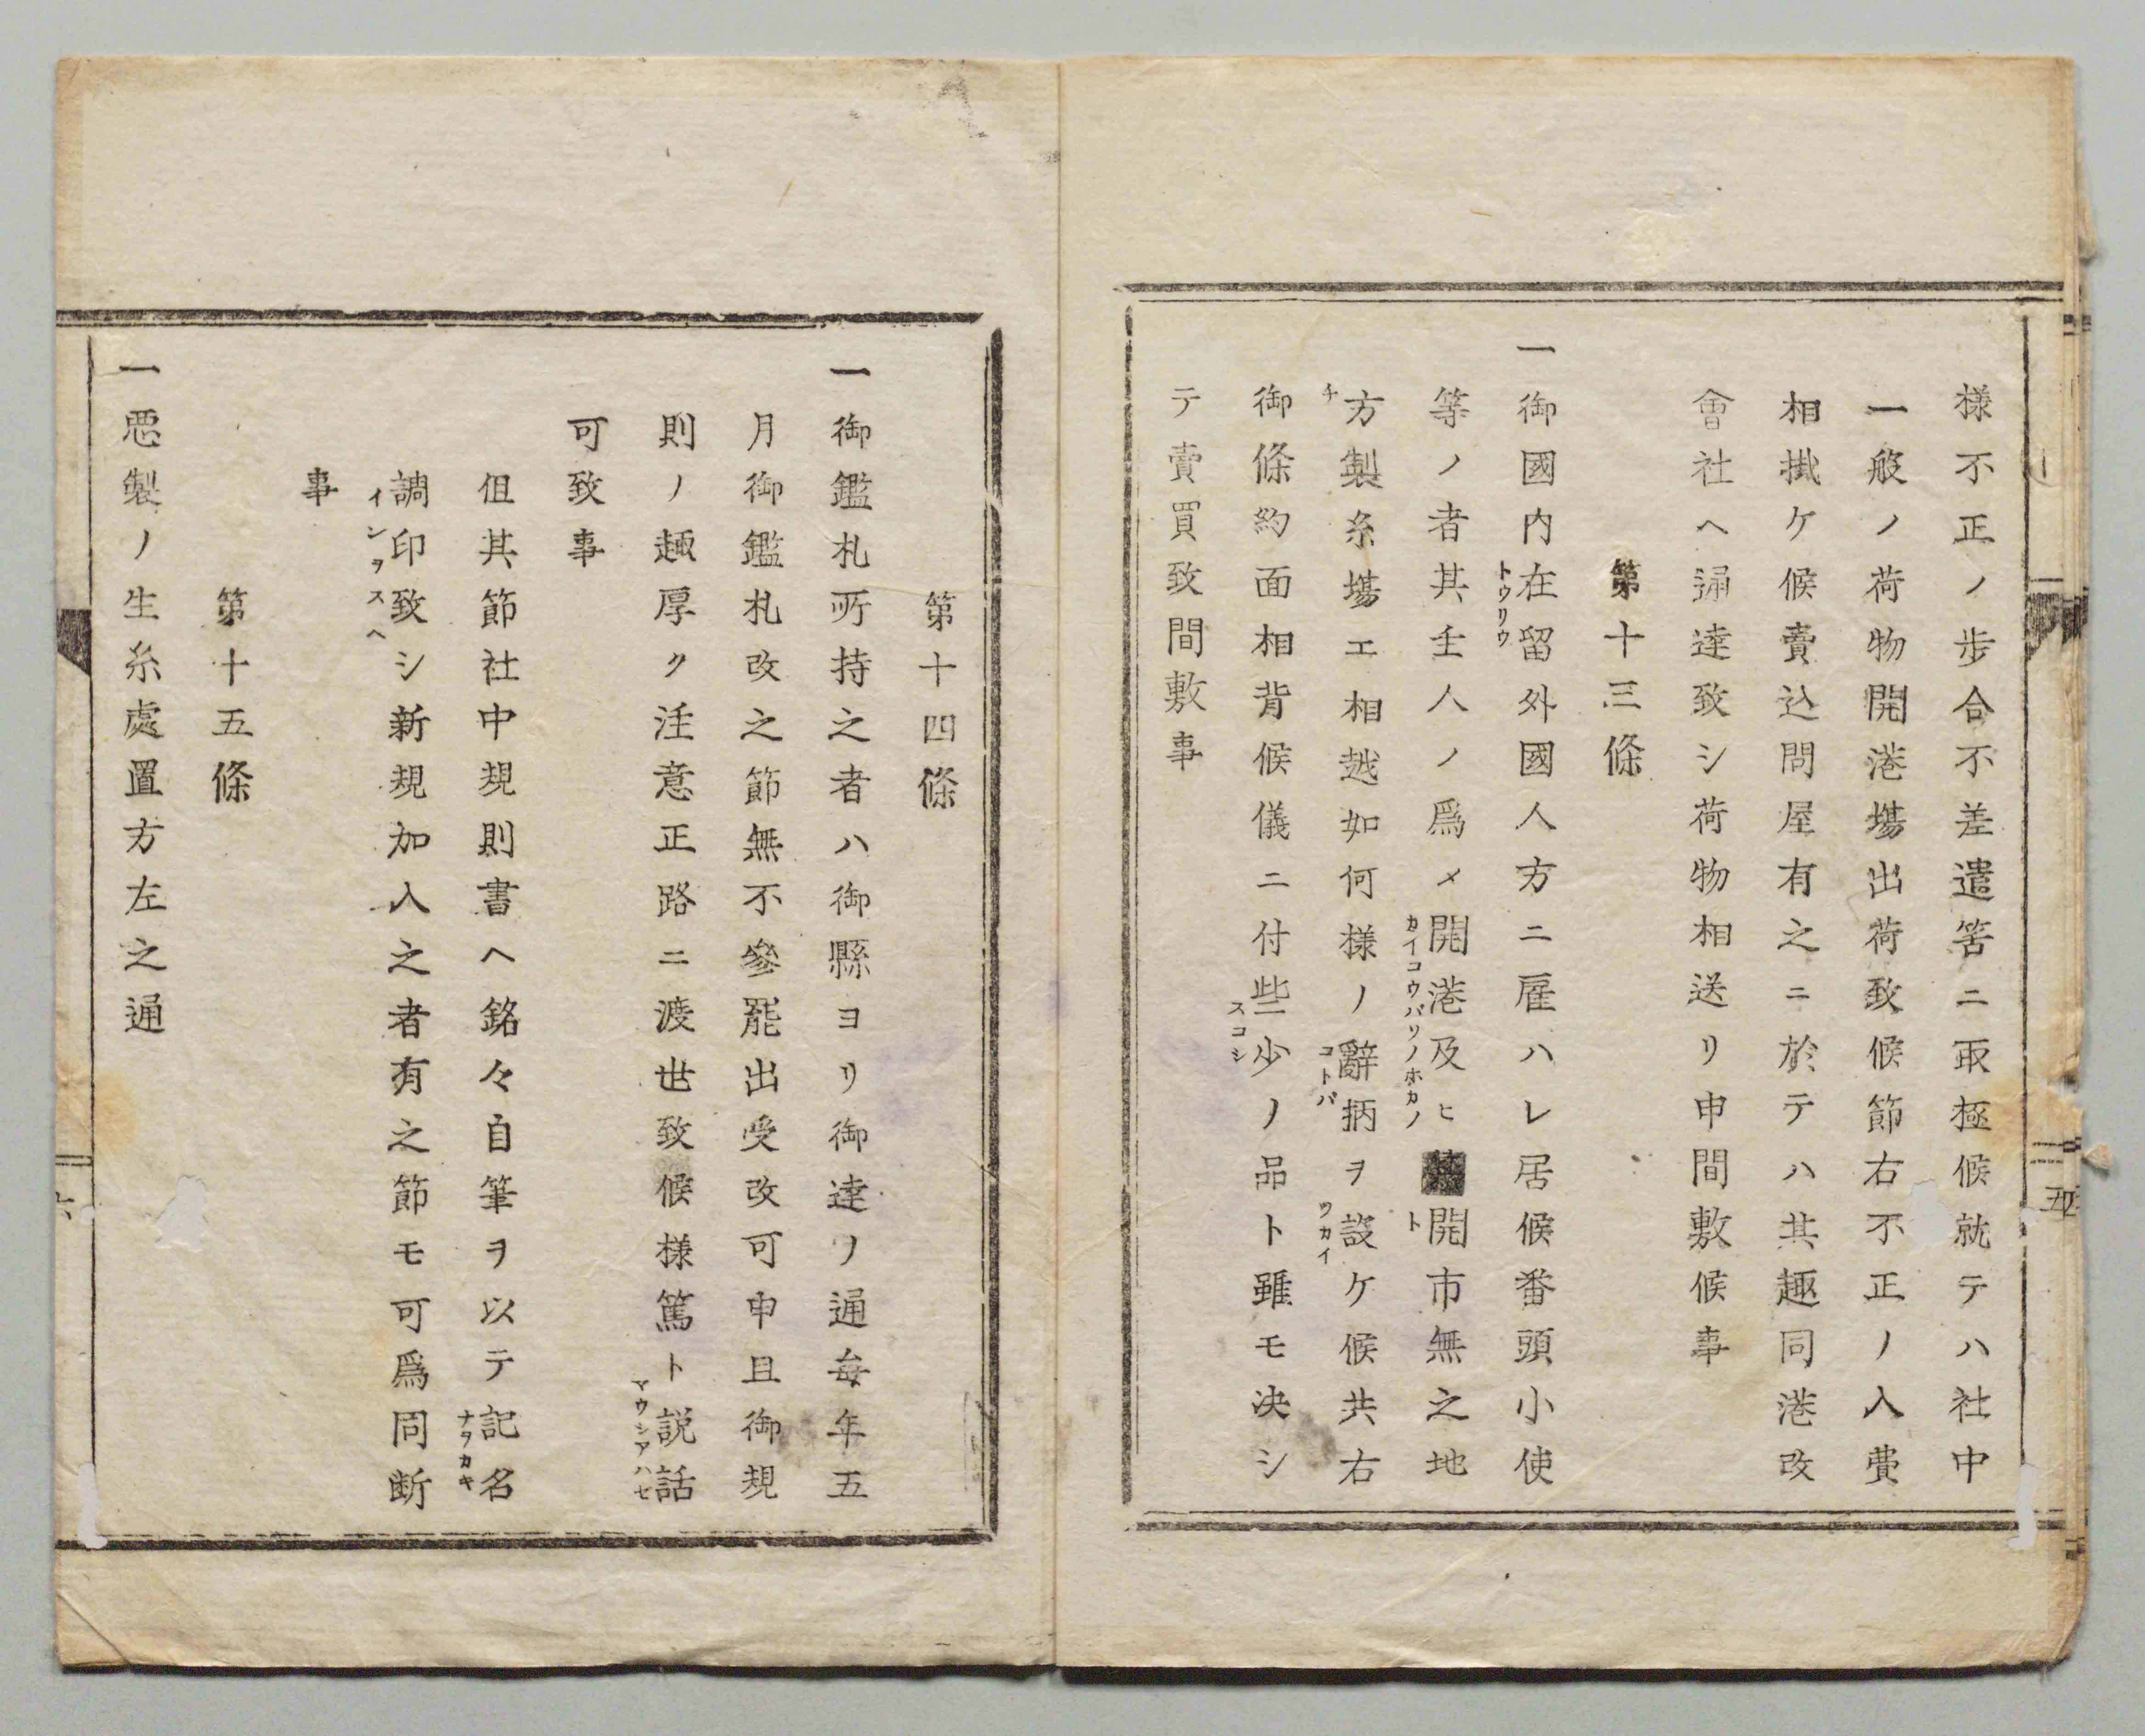 樣不正ノ步合不差遣筈ニ取極候就テハ社中
一般ノ荷物開港塲出荷致候節右不正ノ入費
相掛ケ候賣込問屋有之ニ於テハ其趣同港改
會社ヘ通達致シ荷物相送リ申間敷候事
第十三條
一御國内在留外國人方ニ雇ハレ居候番頭小使
トウリウ
等ノ者其主人ノ爲メ開港及ヒ開市無之地
カイコウバリノホカノ
ト
方製糸塲エ相越如何樣ノ辭柄ヲ設ケ候共右
チ
コトバ
ツカイ
御條約面相背候儀ニ付些少ノ品ト雖モ決シ
スコシ
テ賣買致間敷事
五
第十四條
一御鑑札所持之者ハ御縣ヨリ御達ノ通每年五
月御鑑札改之節無不參罷出受改可申且御規
則ノ趣厚ク注意正路ニ渡世致候樣篤ト説話
マウシアハセ
可致事
但其節社中規則書ヘ銘々自筆ヲ以テ記名
ナヲカキ
調印致シ新規加入之者有之節モ可爲同斷
インヲスヘ
事
第十五條
一惡製ノ生糸處置方左之通
六